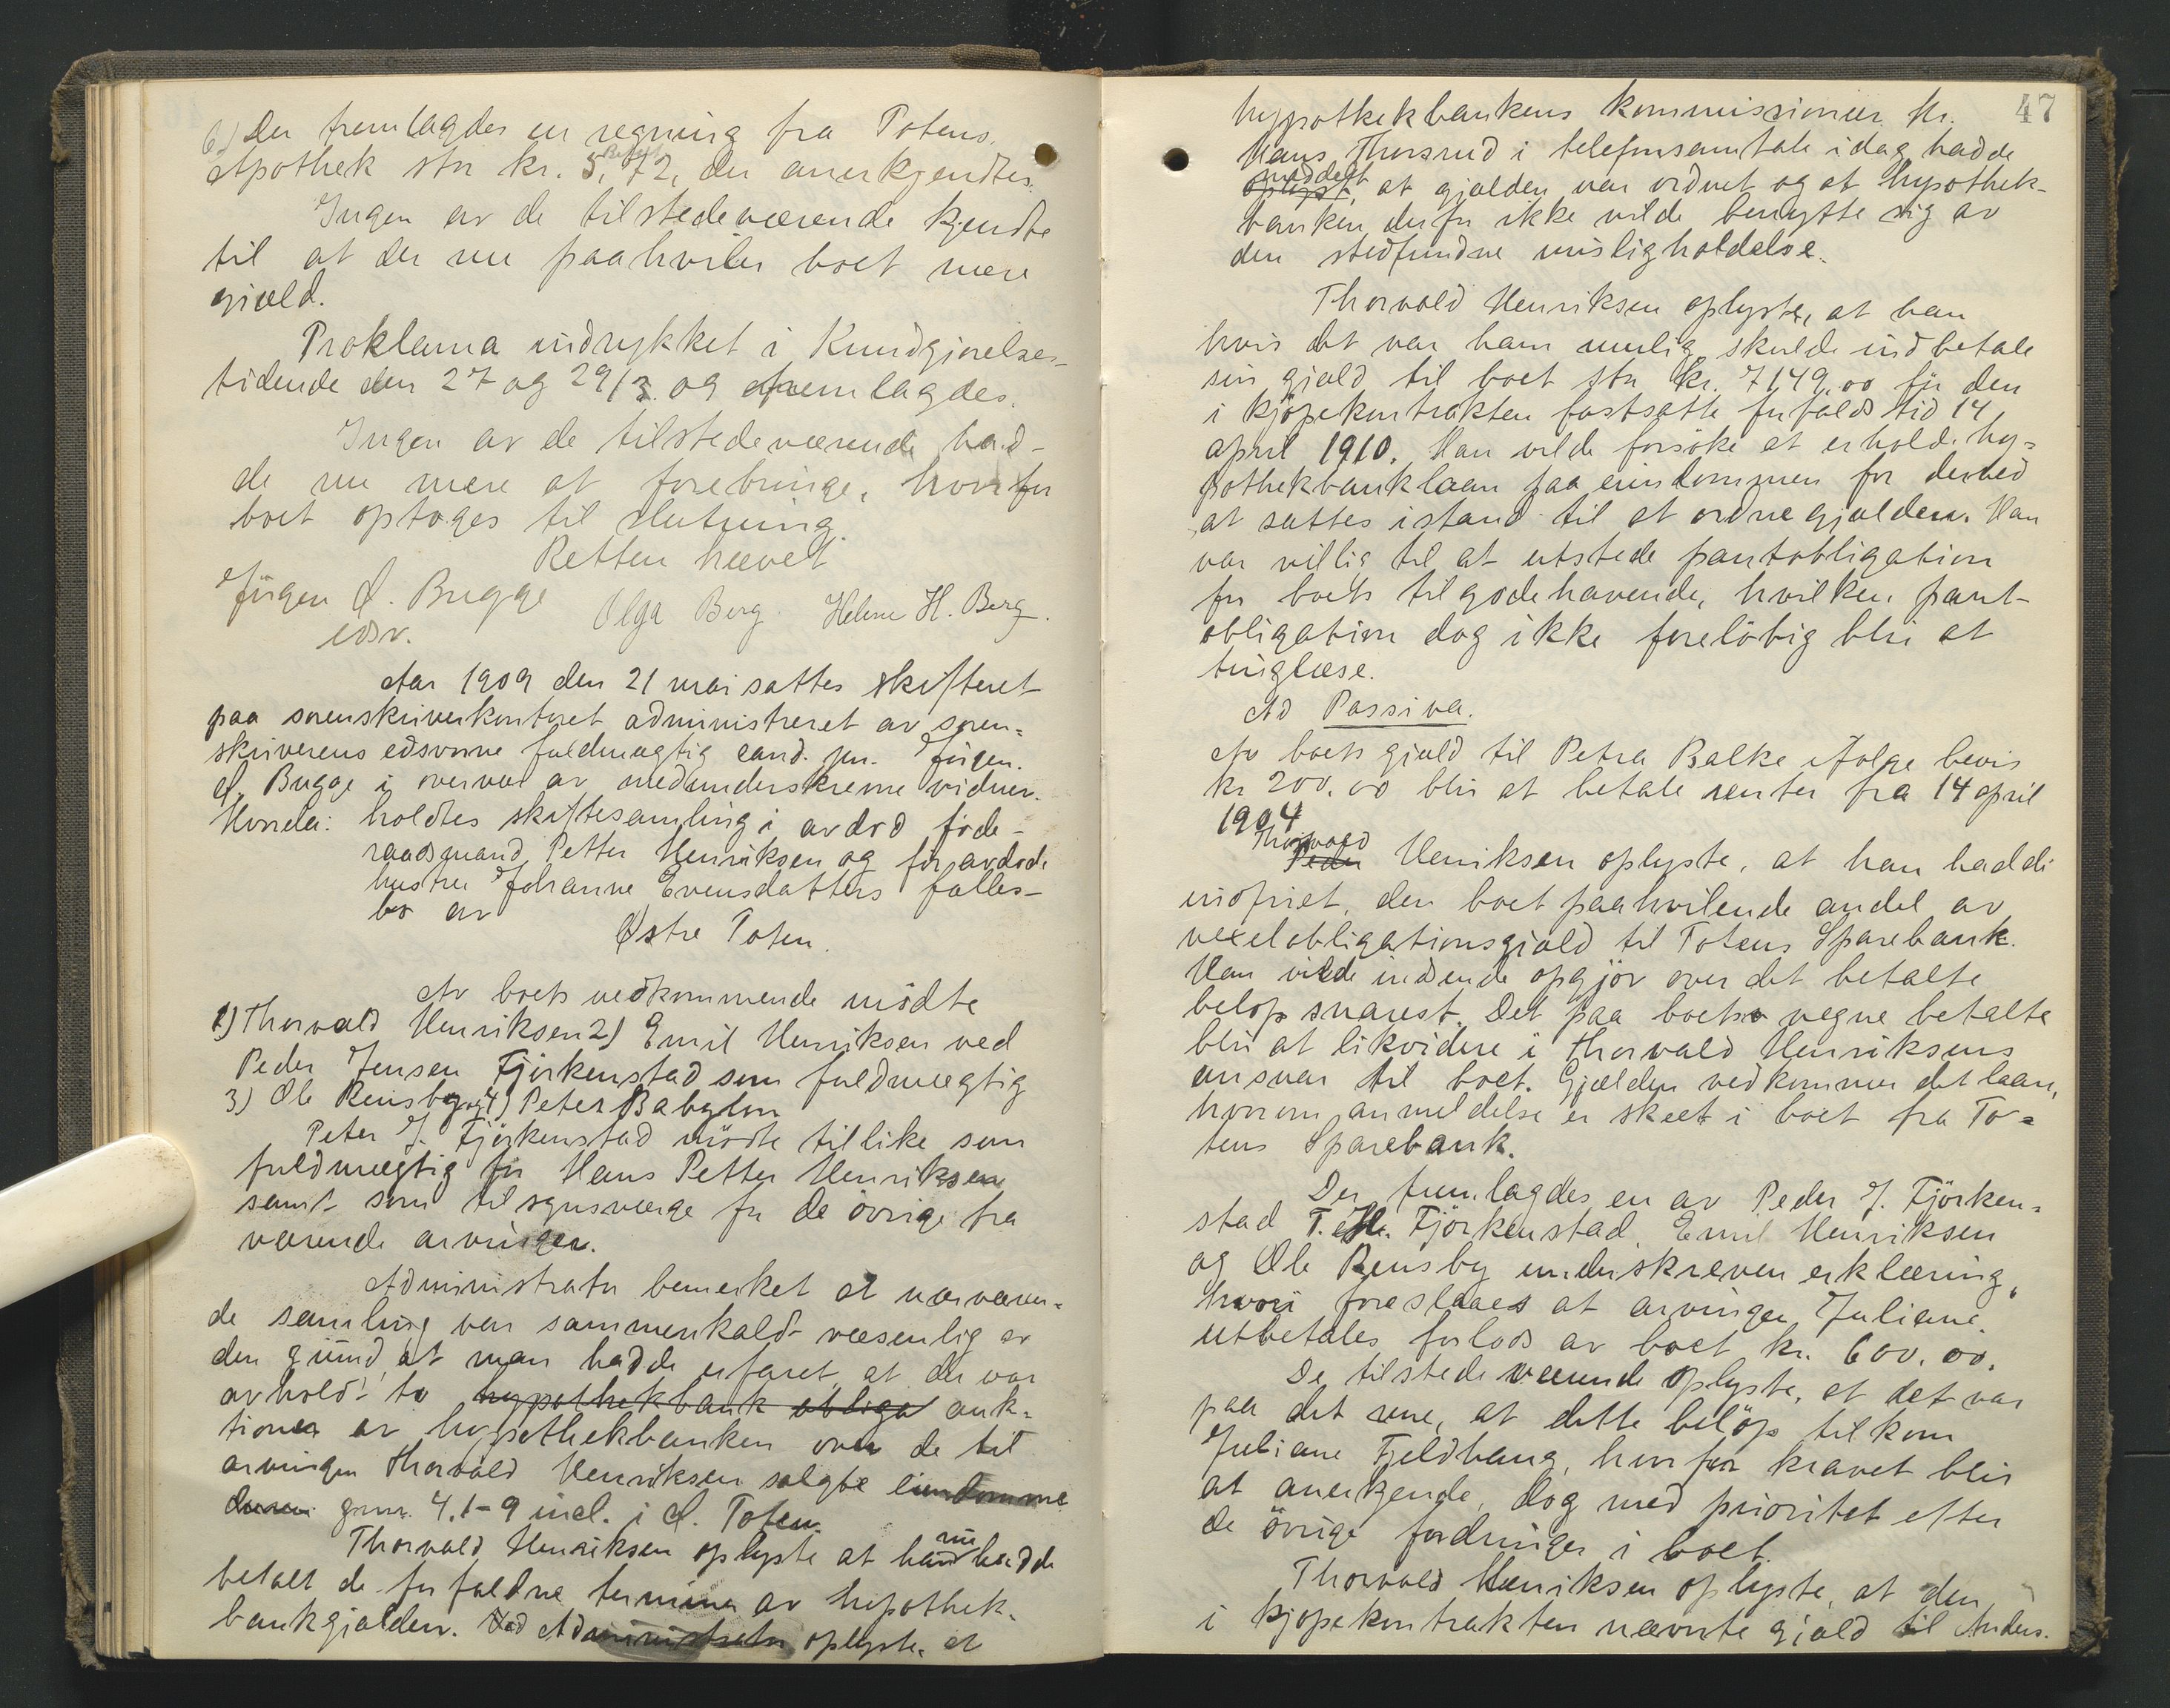 6) Der fremlagdes en regning fra Totens
Apothek stor kr. 5,72, der anerkjendtes.
Ingen av de tilstedeværende kjendte
til at der nu paahviler boet mere
gjæld.
Proklama indrykket i Kundgjørelses-
tidende den 27 og 29/3. og fremlagdes.
Ingen av de tilstedeværende had-
de nu mere at forebringe, hvorfor
boet optoges til slutning.
Retten hævet
Jørgen Ø. Bugge Olga Berg. Helene H. Berg.
edsv.
Aar 1909 den 21 mai sattes skifteret
paa sorenskriverkontoret administreret av soren-
skriverens edsvorne fuldmægtig cand. jur. Jørgen
Ø. Bugge i overvær av medunderskrevne vidner.
Hvorda: holdtes skiftesamling i avdød føde-
raadsmand Petter Henriksen og før avdøde
hustru Johanne Evensdatters fælles-
bo av
Østre Toten.
Av boets vedkommende mödte
1) Thorvald Henriksen 2) Emil Henriksen ved
Peder Jensen Fjörkenstad som fuldmægtig
3) Ole Rensby og 4) Peter Babylon
Peter J. Fjörkenstad mödte tillike som
fuldmægtig for Hans Petter Henriksen
samt som tilsynsværge for de övrige fra
værende arvinger.
Administrator bemerket at nærværen-
de samling var sammenkaldt væsenlig av
den grund, at man hadde erfaret, at der var
avholdt to hypothekbank obliga auk-
tioner av hypothekbanken over de til
arvingen Thorvald Henriksen solgte eiendomme
gnr. 4, 1-9 incl. i Ø. Toten.
Thorvald Henriksen oplyste at han nu hadde
betalt de forfaldne terminer av hypothek-
bankgjælden. Ved Administrator oplyste, at
47
hypothekbankens kommissionær Hr.
Hans Thorsrud i telefonsamtale idag hadde
meddelt
oplyst, at gjælden var ordnet og at hypothek-
banken derfor ikke vilde benytte sig av
den stedfundne misligholdelse.
Thorvald Henriksen oplyste, at han
hvis det var ham mulig skulde indbetale
sin gjæld til boet stor kr. 7149,00 før den
i kjöpekontrakten fastsatte forfalds tid 14
april 1910. Han vilde forsöke at erholde hy-
pothekbanklaan paa eiendommen for derved
at sættes istand til at ordne gjælden. Han
var villig til at utstede pantobligation
for boets tilgodehavende, hvilken pant-
obligation dog ikke foreløbig blir at
tinglæse.
Ad Passiva.
Av boets gjæld til Petra Balke ifølge bevis
kr 200,00 blir at betale renter fra 14 april
1904
Thorvald
Peder Henriksen oplyste, at han hadde
indfriet den boet paahvilende andel av
vexelobligationsgjæld til Totens Sparebank.
Han vilde indsende opgjör over det betalte
beløp snarest. Det paa boets vegne betalte
blir at likvidere i Thorvald Henriksens
ansvar til boet. Gjælden vedkommer det laan,
hvorom anmeldelse er skeet i boet fra To-
tens Sparebank.
Der fremlagdes en av Peder J. Fjörken-
stad T. Fjörkenstad, Emil Henriksen
og Ole Rensby underskreven erklæring,
hvori foreslaaes at arvingen Juliane
utbetales forlods av boet kr. 600,00.
De tilstede værende oplyste, at det var
paa det rene, at dette beløp tilkom
Juliane Fjeldhaug, hvorfor kravet blir
at anerkjende, dog med prioritet efter
de övrige fordringer i boet.
Thorvald Henriksen oplyste, at den
i kjøpekontrakten nævnte gjæld til Anders